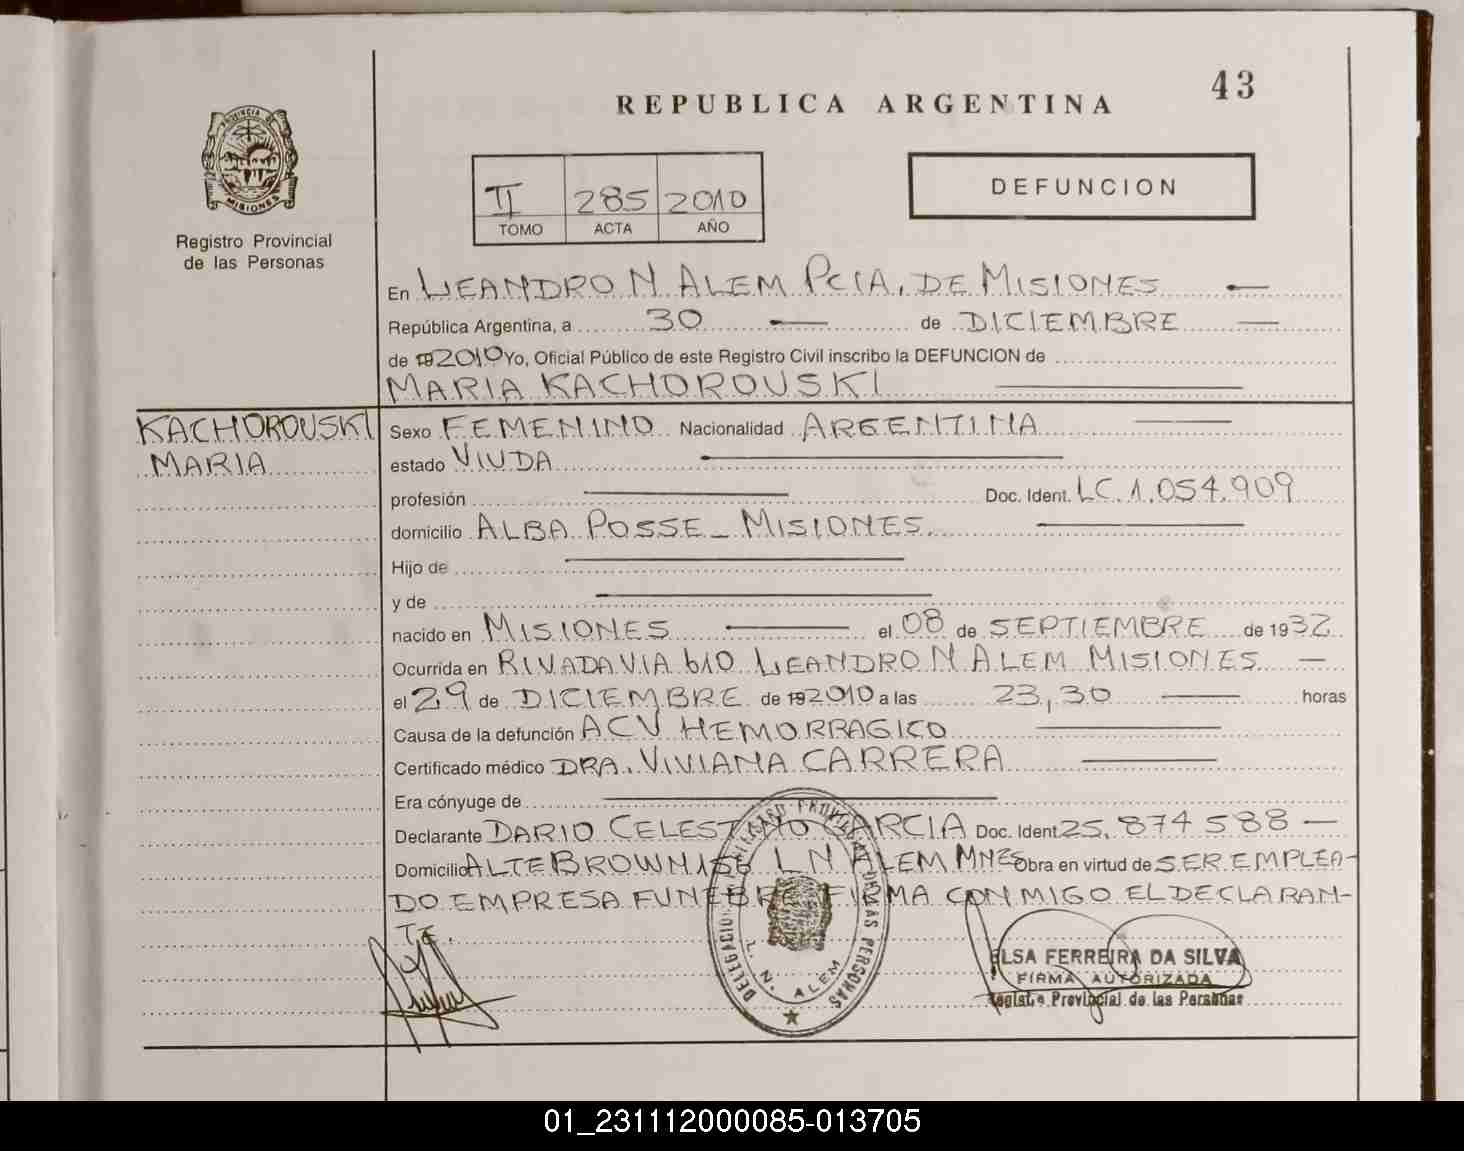 43
REPUBLICA ARGENTINA
PROVINCIA DE
MISIONES
Registro Provincial
de las Personas
II 285 2010
TOMO ACTA AÑO
DEFUNCION
En LEANDRO N ALEM PCIA. DE MISIONES
República Argentina, a 30 de DICIEMBRE
de 192010 Yo, Oficial Público de este Registro Civil inscribo la DEFUNCION de
MARIA KACHOROUSKI
KACHOROUSKI
MARIA
Sexo FEMENINO Nacionalidad ARGENTINA
estado VIUDA
profesión Doc. Ident. LC.1.054.909
domicilio ALBA POSSE - MISIONES.
Hijo de
y de
nacido en MISIONES el 08 de SEPTIEMBRE de 1932
Ocurrida en RIVADAVIA 610 LEANDRO N ALEM MISIONES
el 29 de DICIEMBRE de 192010 a las 23,30 horas
Causa de la defunción ACV HEMORRAGICO
Certificado médico DRA. VIVIANA CARRERA
Era cónyuge de
Declarante DARIO CELESTINO GARCIA Doc. Ident. 25.874588
Domicilio ALTE BROWN 156 L N ALEM MNES Obra en virtud de SER EMPLEA-
DO EMPRESA FUNEBRE FIRMA CONMIGO EL DECLARAN-
TE.
DE LAS PERSONAS
L. N. ALEM
ELSA FERREIRA DA SILVA
FIRMA AUTORIZADA
Registro Provincial de las Personas
01_231112000085-013705